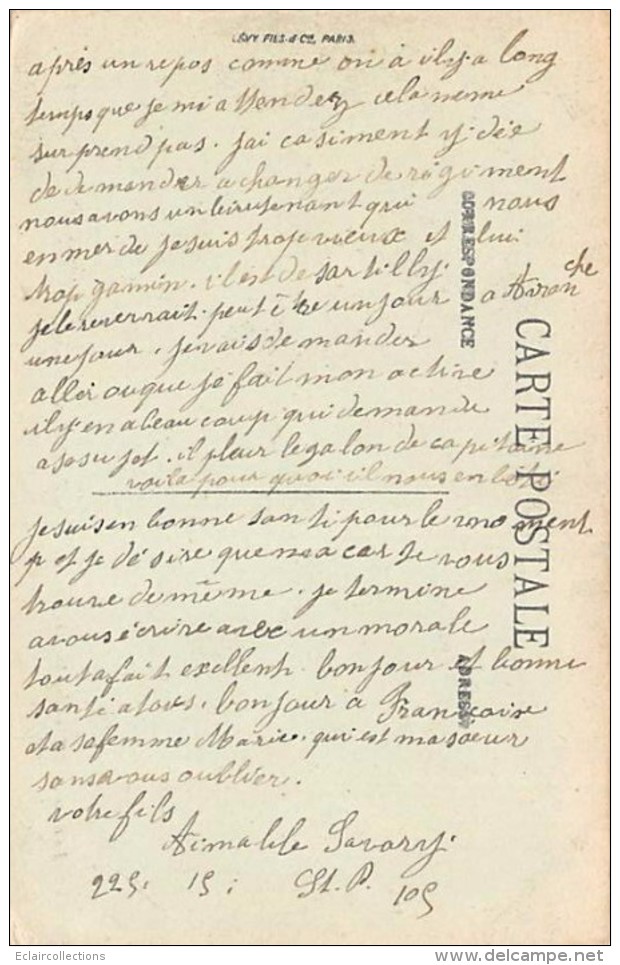 LÉVY FILS & Cie, PARIS.
après un repos comme on à ily a long
temps que je mi attendez cela neme
surprend pas. jai casiment y dée
de demander a changer de régiment
nous avons un leirutenant qui nous
enmerde je suis trop vieux et lui
trop gamin. il est de sartilly.
je le reverrait peut être un jour a Avranche
une jour. je vais demander
aller ou que jé fait mon active
ily en a beaucoup qui demande
a se sujet. il pleur le galon de capitaine
voila pour quoi il nous enbete
CORRESPONDANCE
CARTE POSTALE
ADRESSE
je suis en bonne santi pour le moment
et je désire que ma carte vous
trouve de même. je termine
a vous écrire avec un morale
tout a fait exellent. bonjour et bonne
santi a tous. bonjour a Françoise
et a sa femme Marie. qui est ma soeur
sans vous oublier.
votre fils
Aimable Savary.
225. 15; St. P. 105
Eclaircollections
delcampe.net